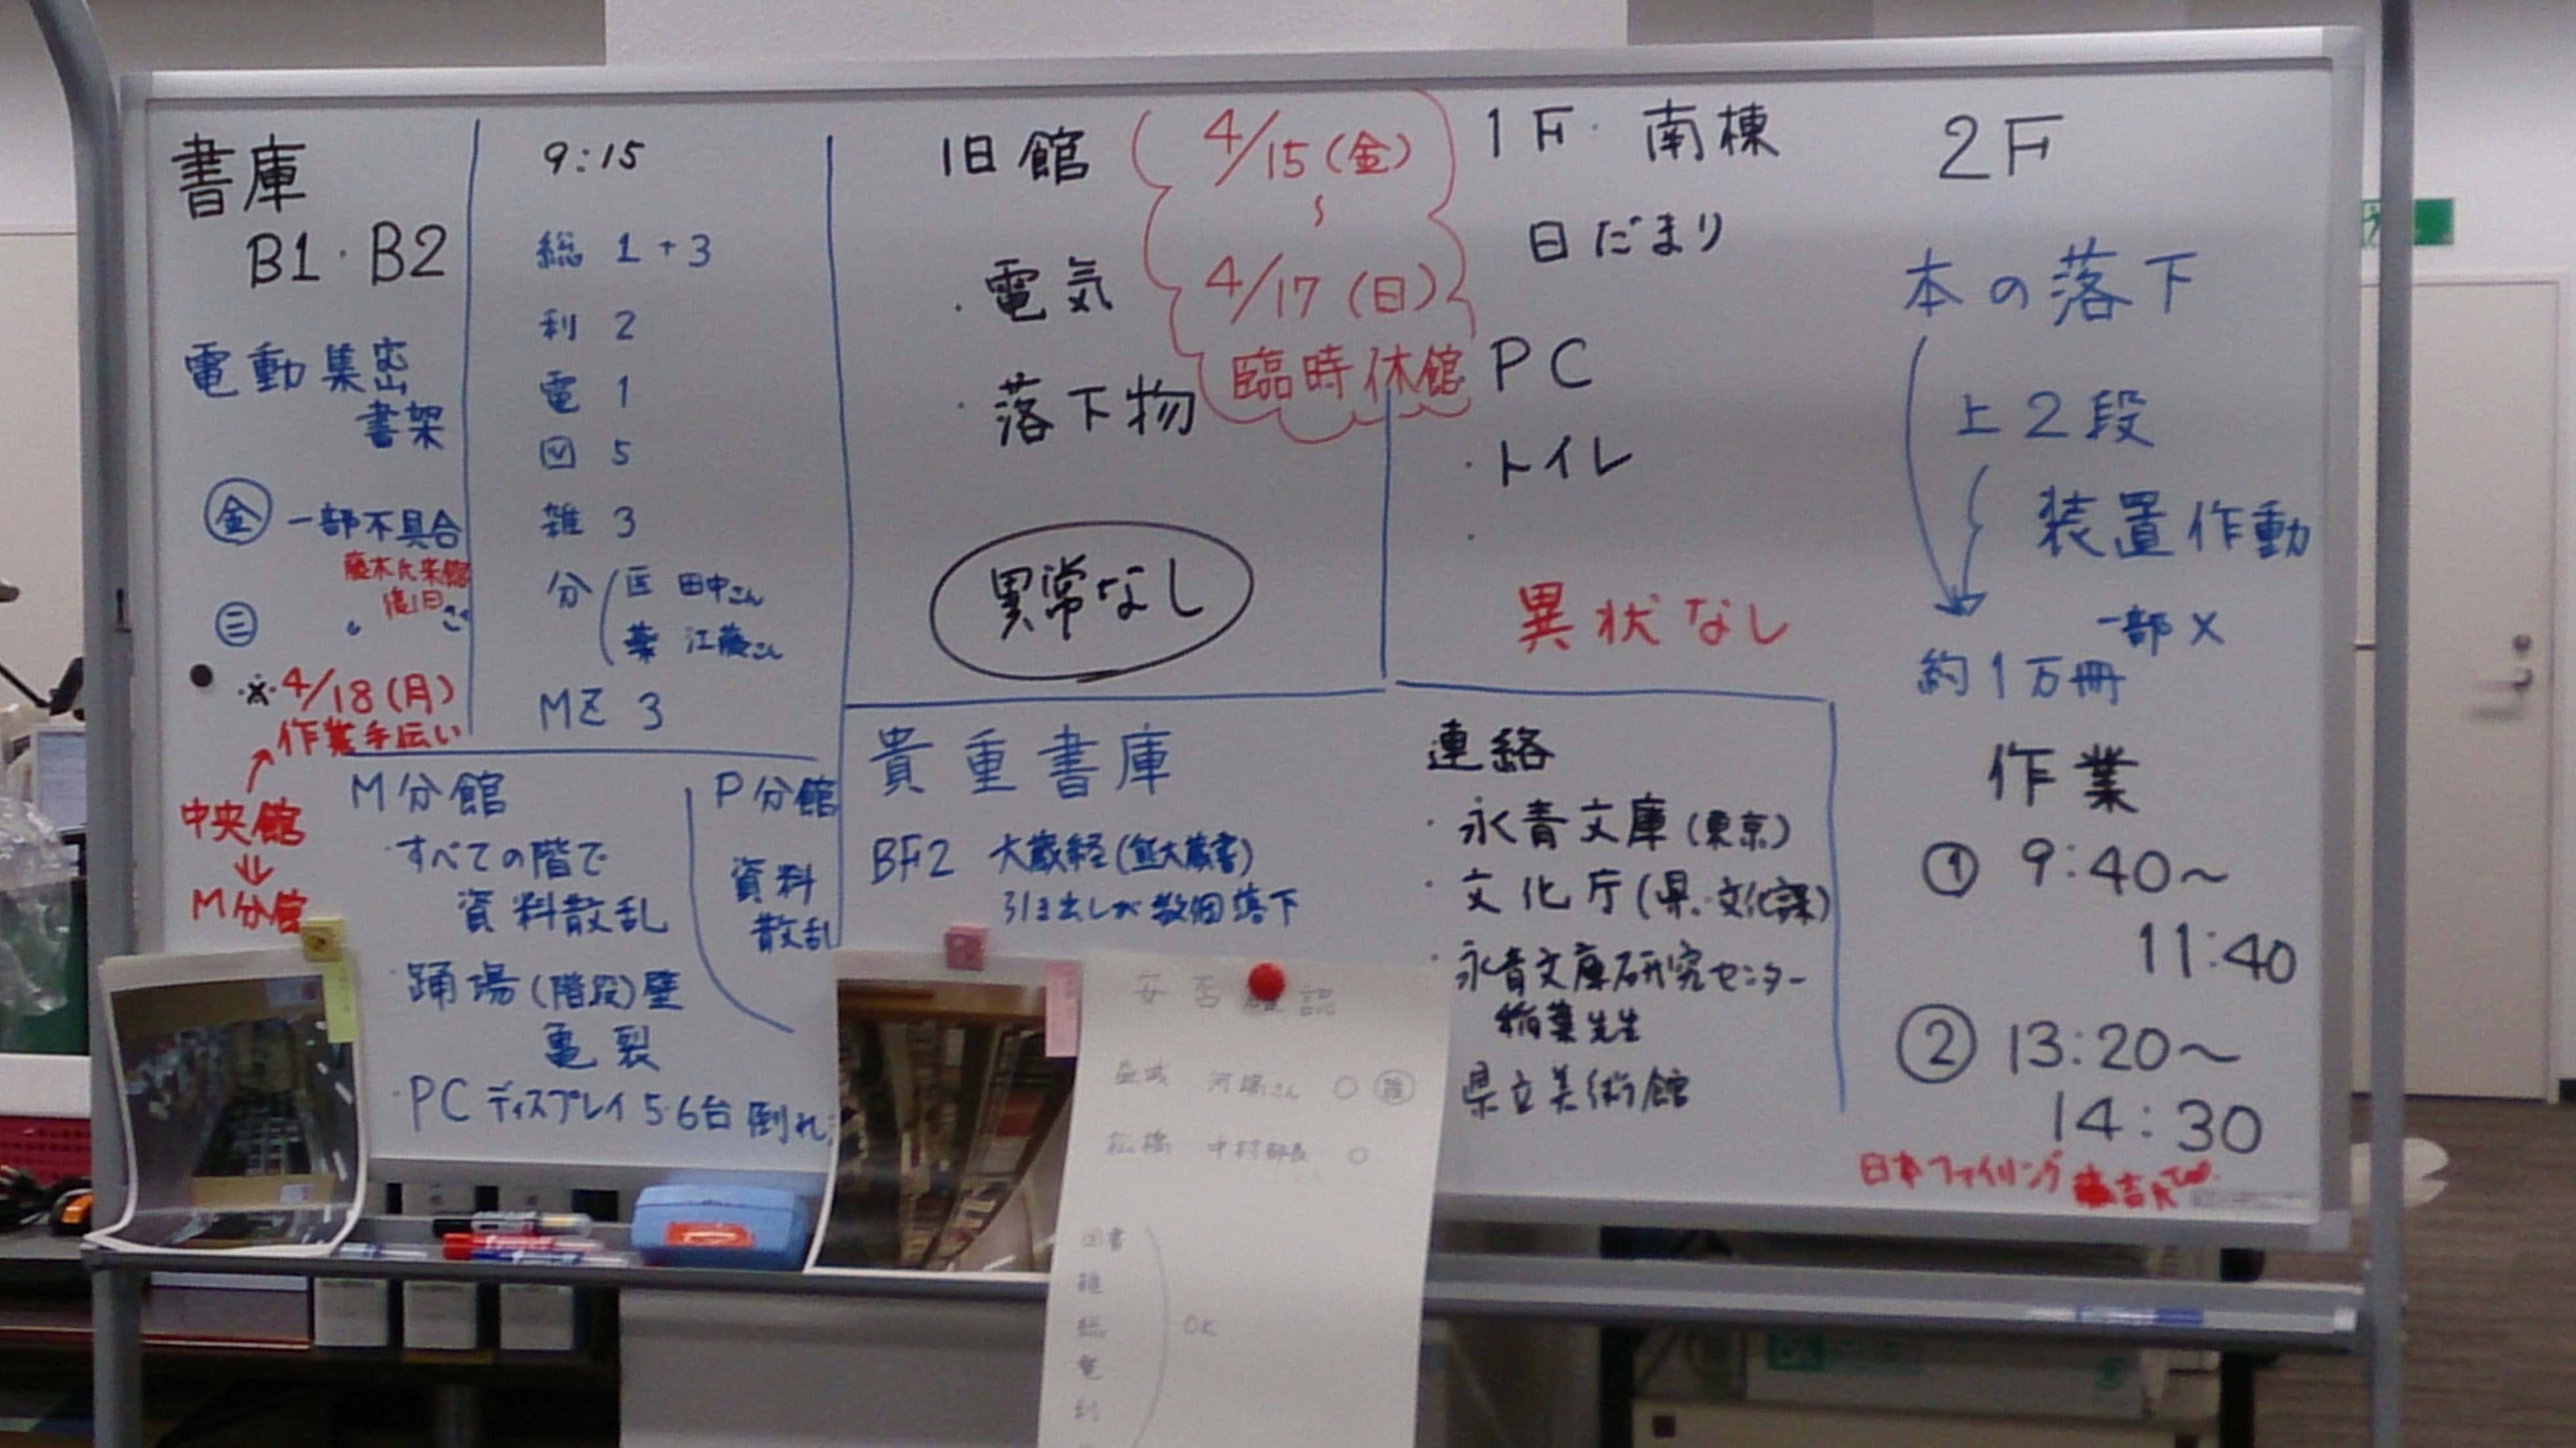 書庫
B1・B2
電動集密
書架
金 一部不具合
藤木氏来館
復旧
三
※4/18(月)
作業手伝い
中央館
M分館
9:15
総 1+3
利 2
電 1
図 5
雑 3
分 医 田中さん
薬 江藤さん
MZ 3
M分館
・すべての階で
資料散乱
・踊場(階段)壁
亀裂
・PCディスプレイ5・6台倒れ
P分館
資料
散乱
旧館
・電気
・落下物
異常なし
4/15(金)
〜
4/17(日)
臨時休館
貴重書庫
BF2 大蔵経
引き出しが数個落下
1F・南棟
日だまり
PC
・トイレ
・
異状なし
連絡
・永青文庫(東京)
・文化庁(県・文化課)
・永青文庫研究センター
稲葉先生
県立美術館
2F
本の落下
上2段
装置作動
一部×
約1万冊
作業
① 9:40〜
11:40
② 13:20〜
14:30
日本ファイリング
安否確認
河瀬さん ○
松橋 中村部長 ○
図書
雑
総
電
利
OK